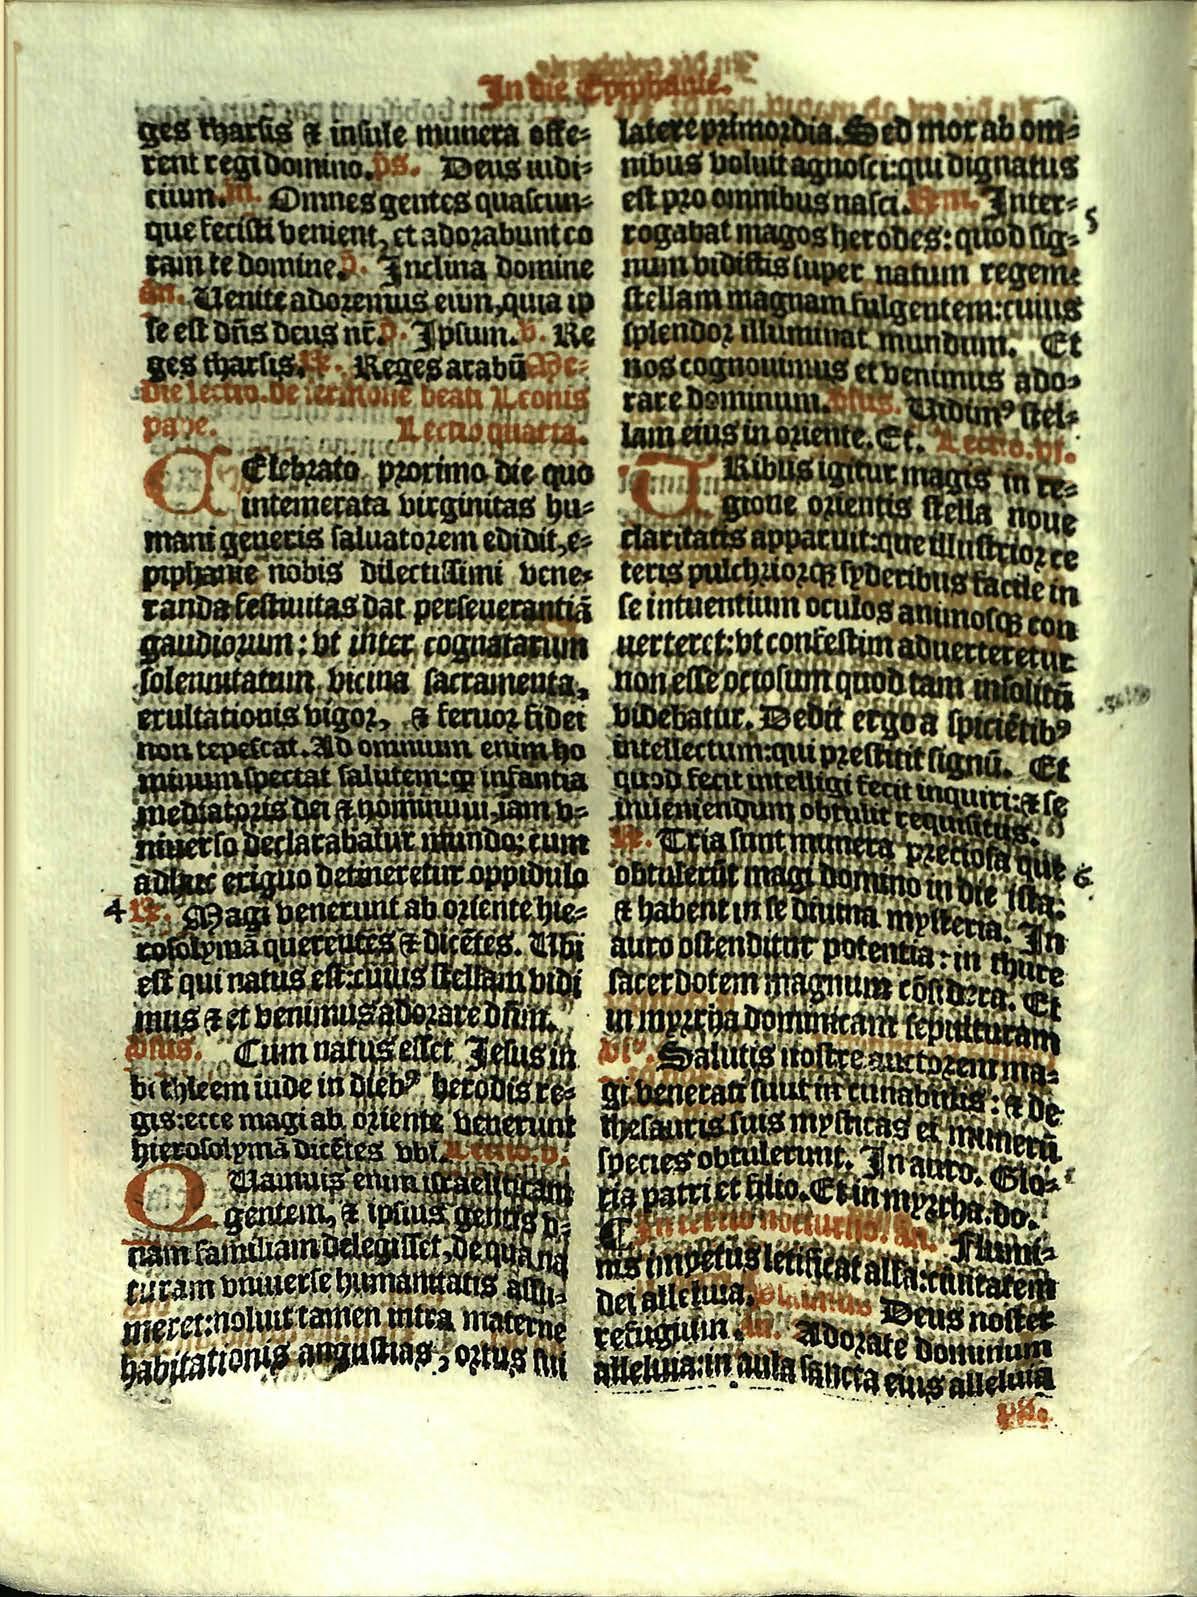 In die Epiphanie.
ges tharsis & insule munera offe-
rent regi domino. ps. Deus iudi-
cium. an. Omnes gentes quascun-
que fecisti venient, et adorabunt co
ram te domine. p. Inclina domine
an. Uenite adoremus eum, quia ip
se est dñs deus nr̃. p. Ipsum. v. Re
ges tharsis. R. Reges arabũ Me-
die lectio. de sermone beati Leonis
pape. Lectio quarta.
CElebrato proximo die quo
intemerata virginitas hu-
mani generis saluatorem edidit, e-
piphanie nobis dilectissimi vene-
randa festiuitas dat perseuerantiã
gaudiorum: vt inter cognatarum
solennitatum vicina sacramenta,
exultationis vigor, & feruor fidei
non tepescat. Ad omnium enim ho
minum spectat salutem: ꝙ infantia
mediatoris dei & hominum, iam v-
niuerso declarabatur mundo: cum
adhuc exiguo detineretur oppidulo
4 R. Magi venerunt ab oriente hie-
rosolymã querentes & dicẽtes. Ubi
est qui natus est: cuius stellam vidi
mus & et venimus adorare dñm.
Vsus. Cum natus esset Jesus in
bethleem iude in dieb⁹ herodis re-
gis: ecce magi ab oriente venerunt
hierosolymã dicẽtes vbi. Lectio. v.
QUamuis enim israeliticam
gentem, & ipsius gentis v-
nam familiam delegisset, de qua na
turam vniuerse humanitatis assu-
meret: noluit tamen intra materne
habitationis angustias, ortus sui
latere primordia. Sed mox ab om-
nibus voluit agnosci: qui dignatus
est pro omnibus nasci. Rm. Inter- 5
rogabat magos herodes: quod sig-
num vidistis super natum regem:
stellam magnam fulgentem: cuius
splendor illuminat mundum. Et
nos cognouimus et venimus ado-
rare dominum. Vsus. Uidim⁹ stel-
lam eius in oriente. Et. Lectio. vi.
TRibus igitur magis in re-
gione orientis stella noue
claritatis apparuit: que illustrior ce
teris pulchriorqꝫ syderibus facile in
se intuentium oculos animosqꝫ con
uerteret: vt confestim aduerteretur
non esse ociosum quod tam insolitũ
videbatur. Dedit ergo a spiciẽtib⁹
intellectum: qui prestitit signũ. Et
quod fecit intelligi fecit inquiri: & se
inueniendum obtulit requisitus.
R. Tria sunt munera preciosa que 6
obtulerũt magi domino in die ista:
& habent in se diuina mysteria. In
auro ostenditur potentia: in thure
sacerdotem magnum cõsidera. Et
in myrrha dominicam sepulturam
Vs⁹. Salutis nostre auctorem ma-
gi venerati sunt in cunabulis: & de
thesauris suis mysticas ei munerũ
species obtulerunt. In auro. Glo-
ria patri et filio. Et in myrrha. do.
In tertio nocturno. An. Flumi-
nis impetus letificat alla: ciuitatem
dei alleluia. Deus noster
refugium. An. Adorate dominum
alleluia: in aula sancta eius alleluia